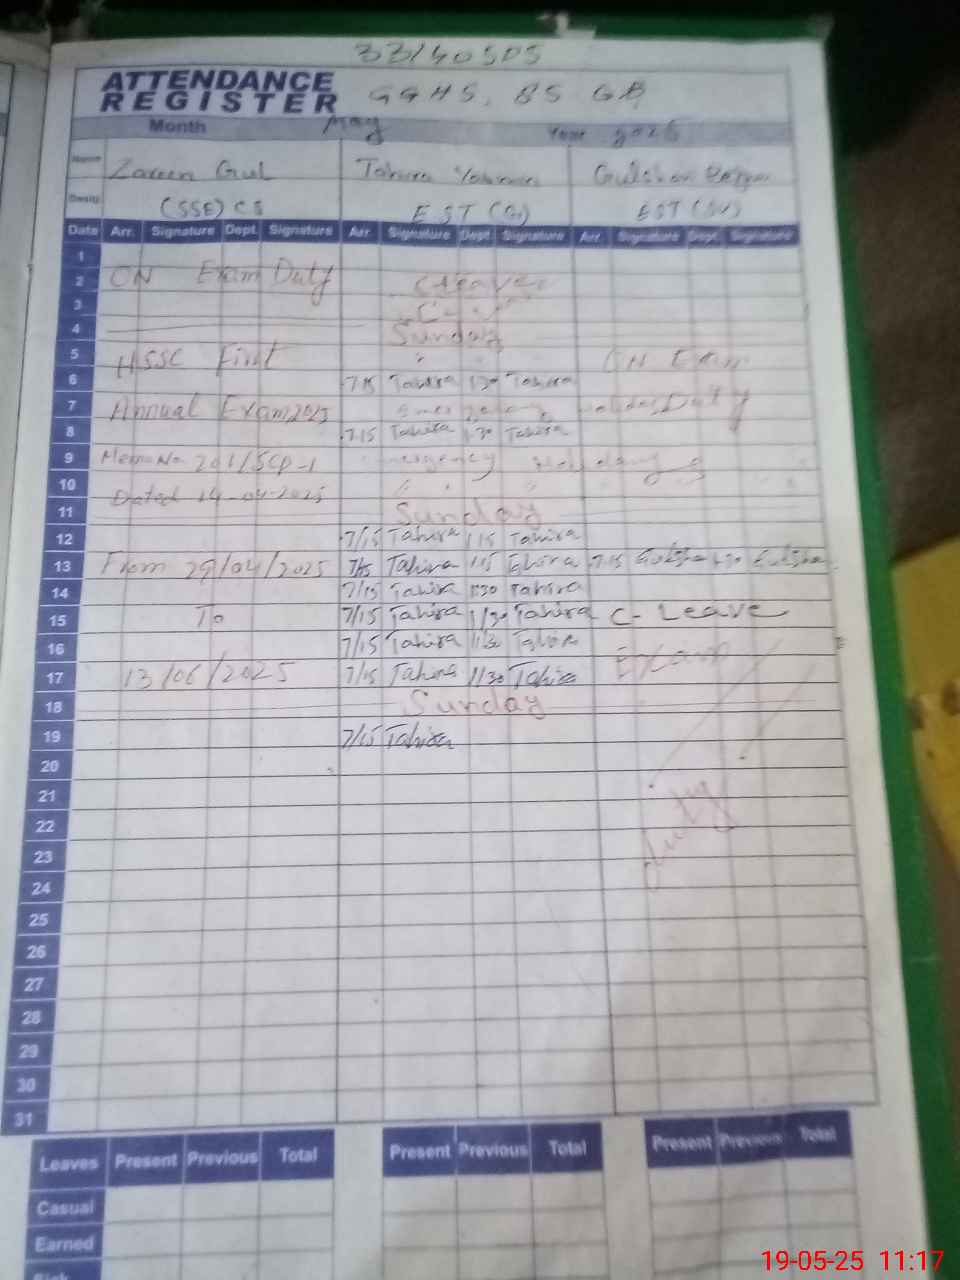 33140505
ATTENDANCE
REGISTER
GGHS, 85 GB
Month May Year 2025
Name Zareen Gul Tahira Gulshan
Desig (SSE) CS EST (G) EST
Date Arr. Signature Dept. Signature Arr. Signature Dept. Signature Arr. Signature Dept. Signature
1
2 ON Exam Duty C-Leave
3
4 Sunday
5 HSSC First ON Exam
6 7.15 Tahira 1.30 Tahira
7 Annual Exam 2025 Duty
8 7.15 Tahira 1.30 Tahira
9 Memo No 201/SCP-1 Emergency
10 Dated 14-04-2025 " " "
11 Sunday
12 7/15 Tahira 1 15 Tahira
13 From 29/04/2025 7/15 Tahira 1 15 Tahira 7.15
14 7/15 Tahira 1.30 Tahira
15 To 7/15 Tahira 1/30 Tahira C- Leave
16 7/15 Tahira 1.30 Tahira
17 13/06/2025 7/15 Tahira 1/30 Tahira Exam
18 Sunday
19 7/15 Tahira
20
21 Duty
22
23
24
25
26
27
28
29
30
31
Leaves Present Previous Total Present Previous Total Present Previous Total
Casual
Earned
Sick
19-05-25 11:17